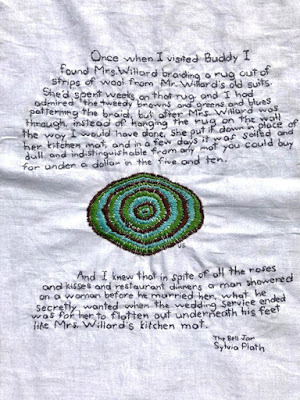 Once when I visited Buddy I
found Mrs. Willard braiding a rug out of
strips of wool from Mr. Willard's old suits.
She'd spent weeks on that rug and I had
admired the tweedy browns and greens and blues
patterning the braid, but after Mrs. Willard was
through, instead of hanging the rug on the wall
the way I would have done, she put it down in place of
her kitchen mat, and in a few days it was soiled and
dull and indistinguishable from any mat you could buy
for under a dollar in the five and ten.
And I knew that in spite of all the roses
and kisses and restaurant dinners a man showered
on a woman before he married her, what he
secretly wanted when the wedding service ended
was for her to flatten out underneath his feet
like Mrs. Willard's kitchen mat.
The Bell Jar
Sylvia Plath